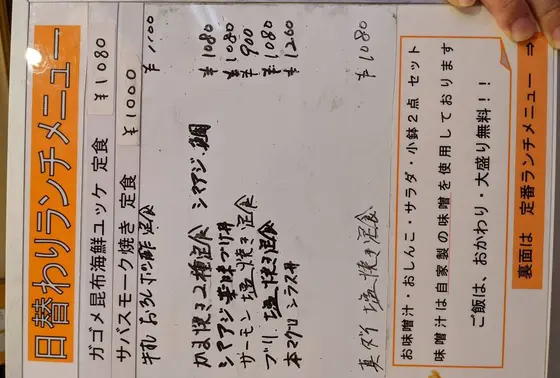 日替わりランチメニュー
ガゴメ昆布海鮮ユッケ 定食 ¥1080
サバスモーク焼き 定食 ¥1000
おろしポン酢定食 ¥1100
かま焼き2種定食 シマアジ、鯛 ¥1080
シマアジ 丼 ¥1080
サーモン塩焼き定食 ¥900
ブリ 塩焼き定食 ¥1080
本マグロシラス丼 ¥1200
真ダイ 塩焼き定食 ¥1080
お味噌汁・おしんこ・サラダ・小鉢2点 セット
味噌汁は自家製の味噌を使用しております
ご飯は、おかわり・大盛り無料!!
裏面は 定番ランチメニュー ⇒